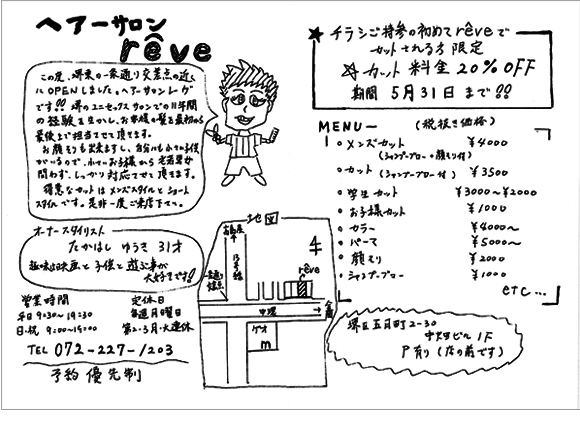 ヘアーサロン
rêve
この度、堺東の一条通り交差点の近く
にOPENしましたヘアーサロンレーヴ
です!! 堺のユニセックスサロンでの11年間
の経験を生かし、お客様の髪を最初から
最後まで担当させて頂きます。
お顔そりも出来ますし、自分にも小さな子供
がいるので、小さいお子様から老若男女
問わず、しっかり対応させて頂きます。
得意なカットはメンズスタイルとショート
スタイルです。是非一度ご来店下さい。
オーナースタイリスト
たかはし ゆうき 31才
趣味は映画と子供と遊ぶ事が
大好きです!!
営業時間
平日 9:30〜19:30
日・祝 9:00〜19:00
定休日
毎週月曜日
第2・3月・火連休
TEL 072-227-1203
予約優先制
★チラシご持参の初めてrêveで
カットされる方限定
☆カット料金20%OFF
期間 5月31日まで!!
MENU― (税抜き価格)
・メンズカット ¥4000
(シャンプーブロー・顔そり付)
・カット (シャンプーブロー付) ¥3500
・学生カット ¥3000〜¥2000
・お子様カット ¥1000
・カラー ¥4000〜
・パーマ ¥5000〜
・顔そり ¥2000
・シャンプーブロー ¥1000
etc…
地図
rêve
中環
ゲオ
m
堺区五月町2-30
1F
P有り (店の前です)